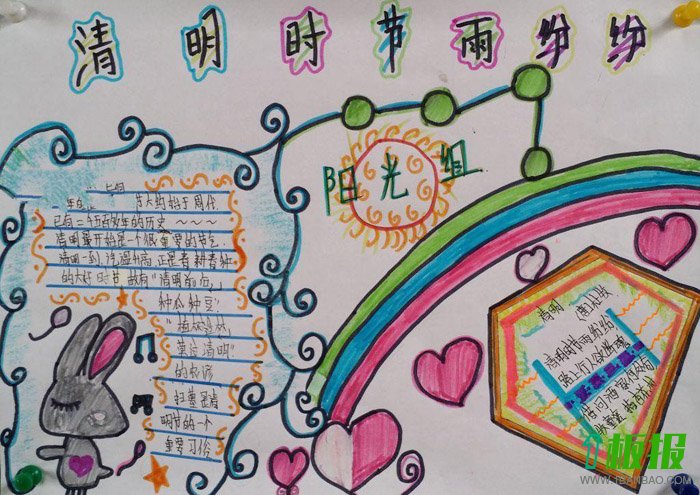 清明时节雨纷纷
阳光组
节大约始于周代
已有二千五百多年的历史
清明最开始是一个很重要的节气
清明一到，气温升高，正是春耕春种
的大好时节，故有"清明前后，
种瓜种豆"
"植树造林，
莫过清明"
的农谚
扫墓是清
明节的一个
重要习俗
清明 (唐)杜牧
清明时节雨纷纷
路上行人欲断魂
借问酒家何处有
牧童遥指杏花村
板报
WWW.1BANBAO.COM